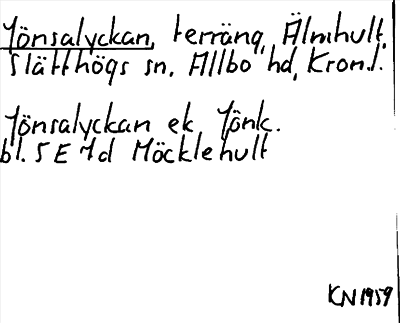 Jönsalyckan, terräng, Älmhult,
Slätthögs sn, Allbo hd, Kron.l.
Jönsalyckan ek Jönk.
bl. 5 E 7d Möcklehult
KN 1959